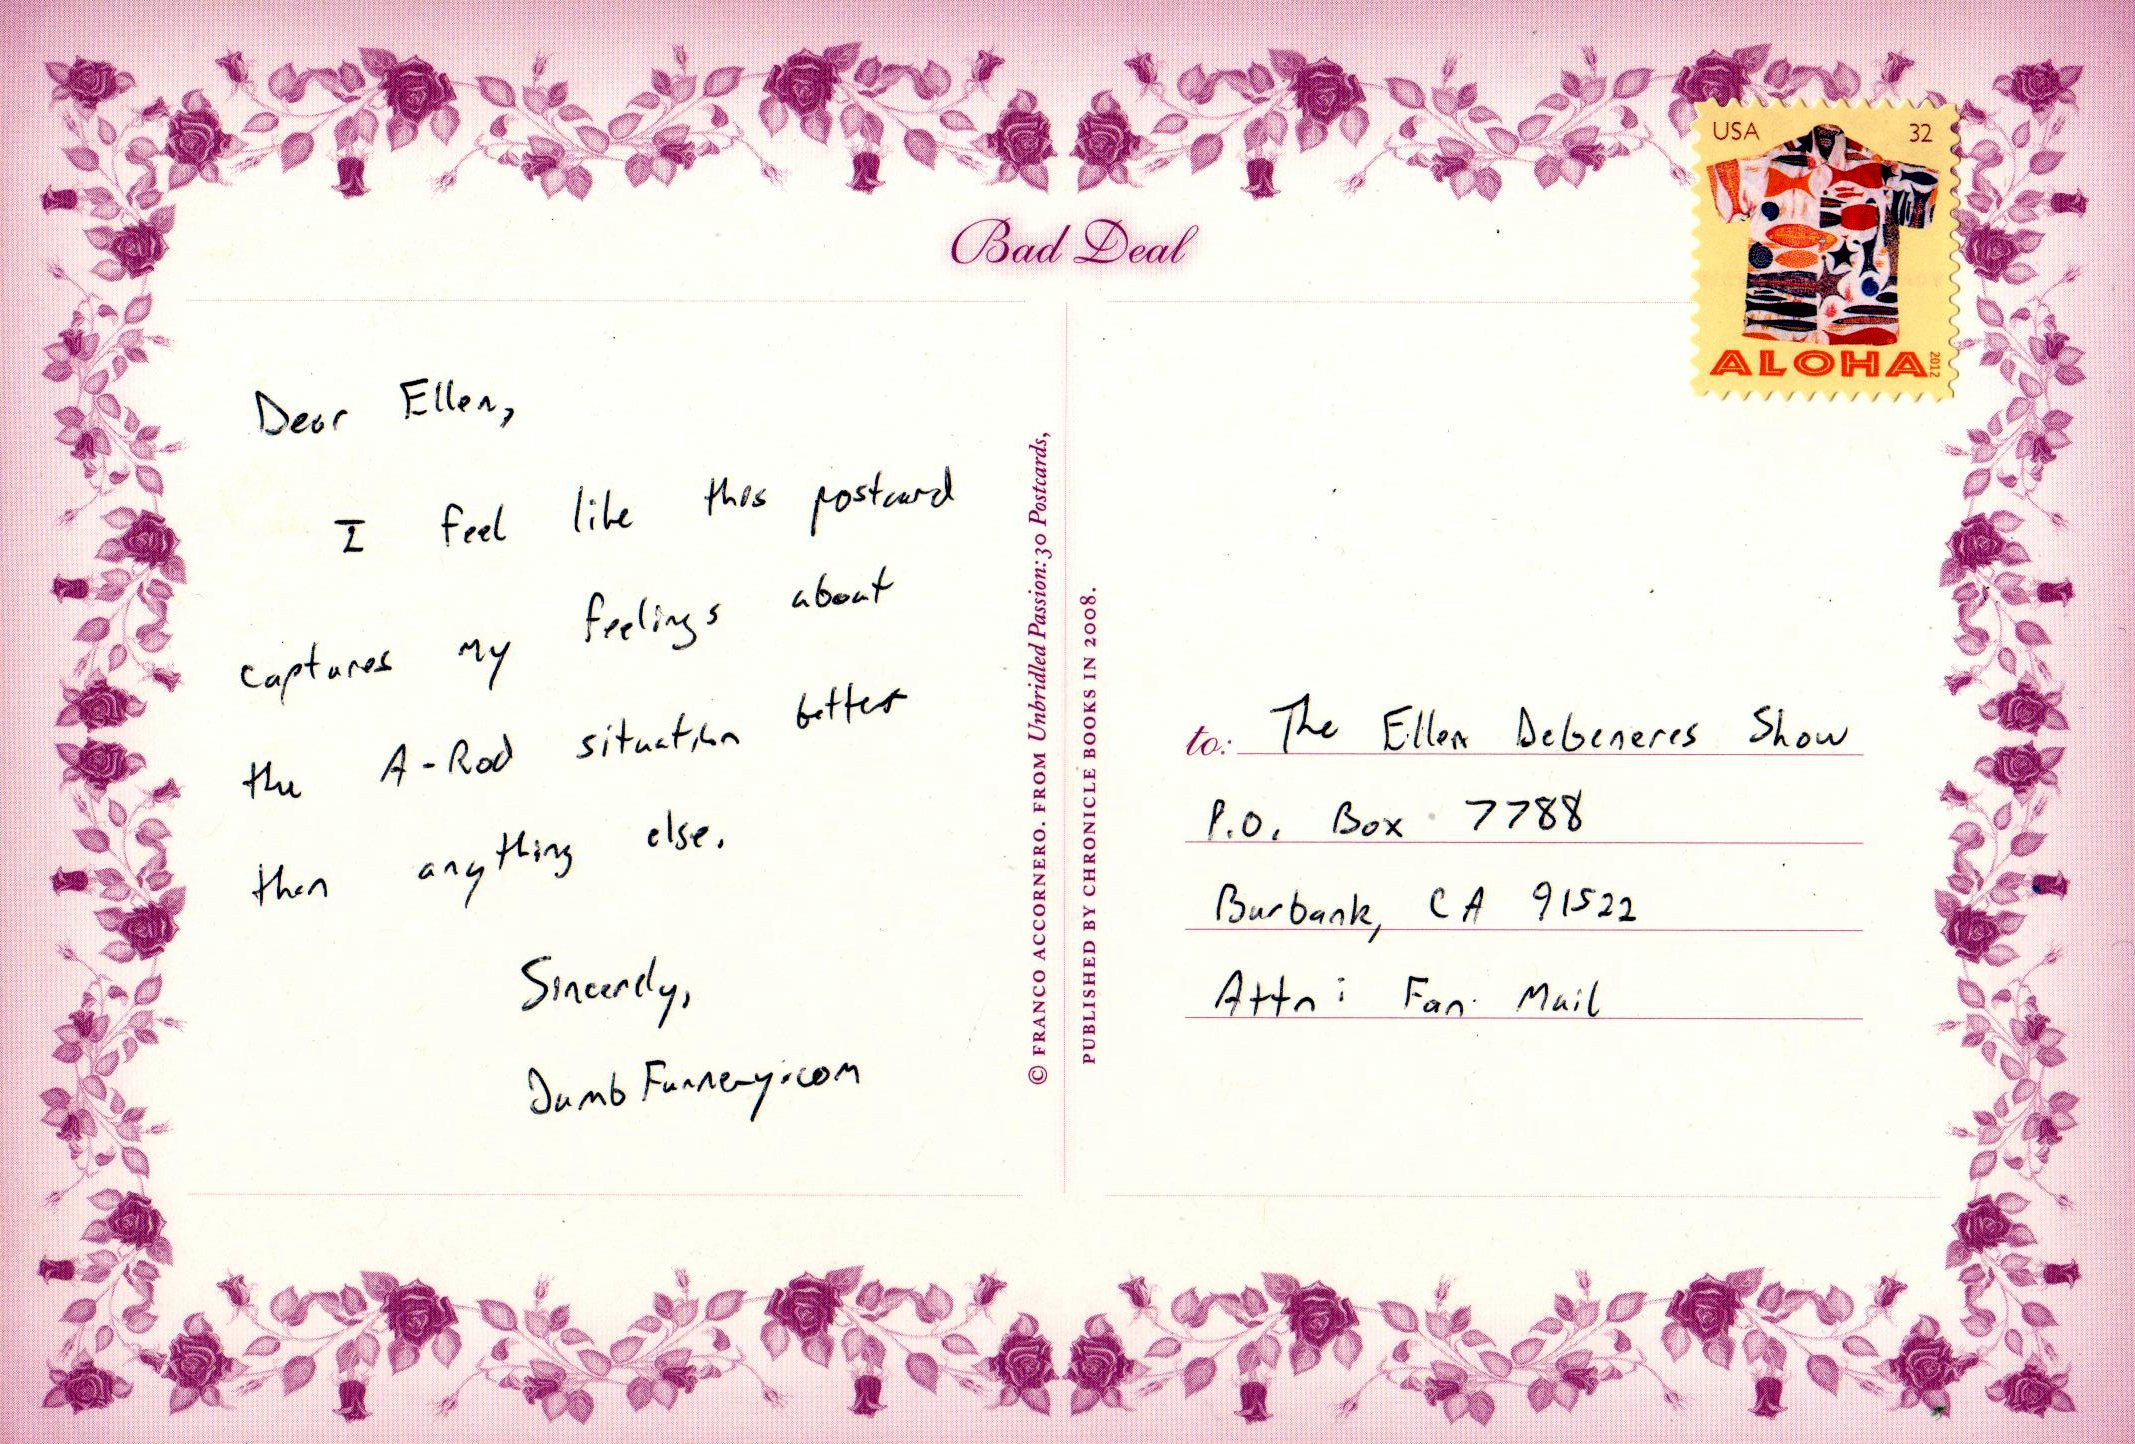 USA 32
ALOHA
2012
Bad Deal
Dear Ellen,
I feel like this postcard
captures my feelings about
the A-Rod situation better
than anything else.
Sincerely,
DumbFunnery.com
© FRANCO ACCORNERO. FROM Unbridled Passion: 30 Postcards,
PUBLISHED BY CHRONICLE BOOKS IN 2008.
to: The Ellen DeGeneres Show
P.O. Box 7788
Burbank, CA 91522
Attn: Fan Mail